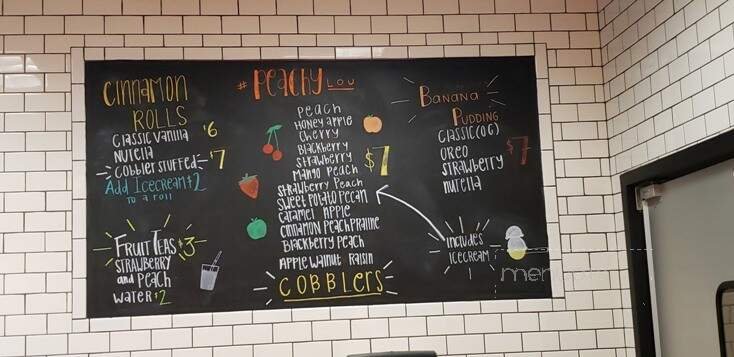 Cinnamon
Rolls
Classic Vanilla $6
Nutella
Cobbler Stuffed $7
Add Icecream $2
to a roll
Fruit Teas $3
Strawberry
and Peach
Water $2
#PeachyLou
Peach
Honey Apple
Cherry
Blackberry
Strawberry
Mango Peach
$7
Strawberry Peach
Sweet Potato Pecan
Caramel Apple
Cinnamon Peach Praline
Blackberry Peach
Apple Walnut Raisin
Cobblers
Banana
Pudding
Classic (OG)
Oreo
Strawberry
Nutella
$7
Includes
Icecream